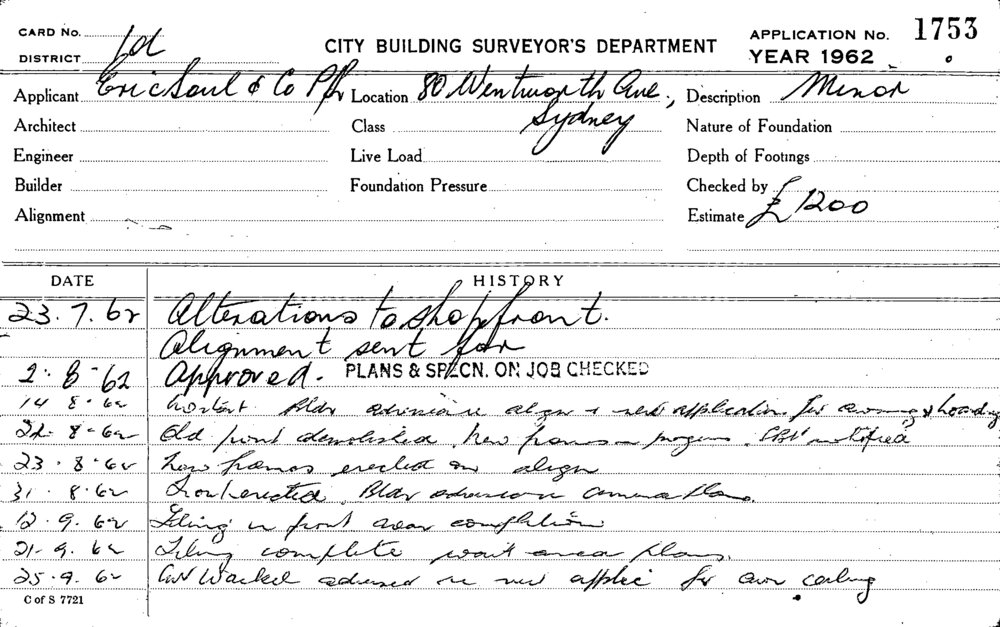 CARD No.
DISTRICT
CITY BUILDING SURVEYOR'S DEPARTMENT
APPLICATION No. 1753
YEAR 1962
Applicant Eric Saul & Co P/L Location 80 Wentworth Ave., Description Minor
Sydney
Architect Class Nature of Foundation
Engineer Live Load Depth of Footings
Builder Foundation Pressure Checked by
Alignment Estimate £1200
DATE HISTORY
23.7.62 Alterations to shopfront.
Alignment sent for
2.8.62 Approved. PLANS & SPECN. ON JOB CHECKED
14 8.62 Bldr align & new application for awning & hoarding
22.8-62 Old front demolished, new frames in progress. notified
23.8.62 new frames erected on align
31.8.62 Bldr plans.
12.9.62 Tiling in front near completion
21-9.62 Tiling complete wait plans.
25.9.62 advised re new applic for ceiling
C of S 7721